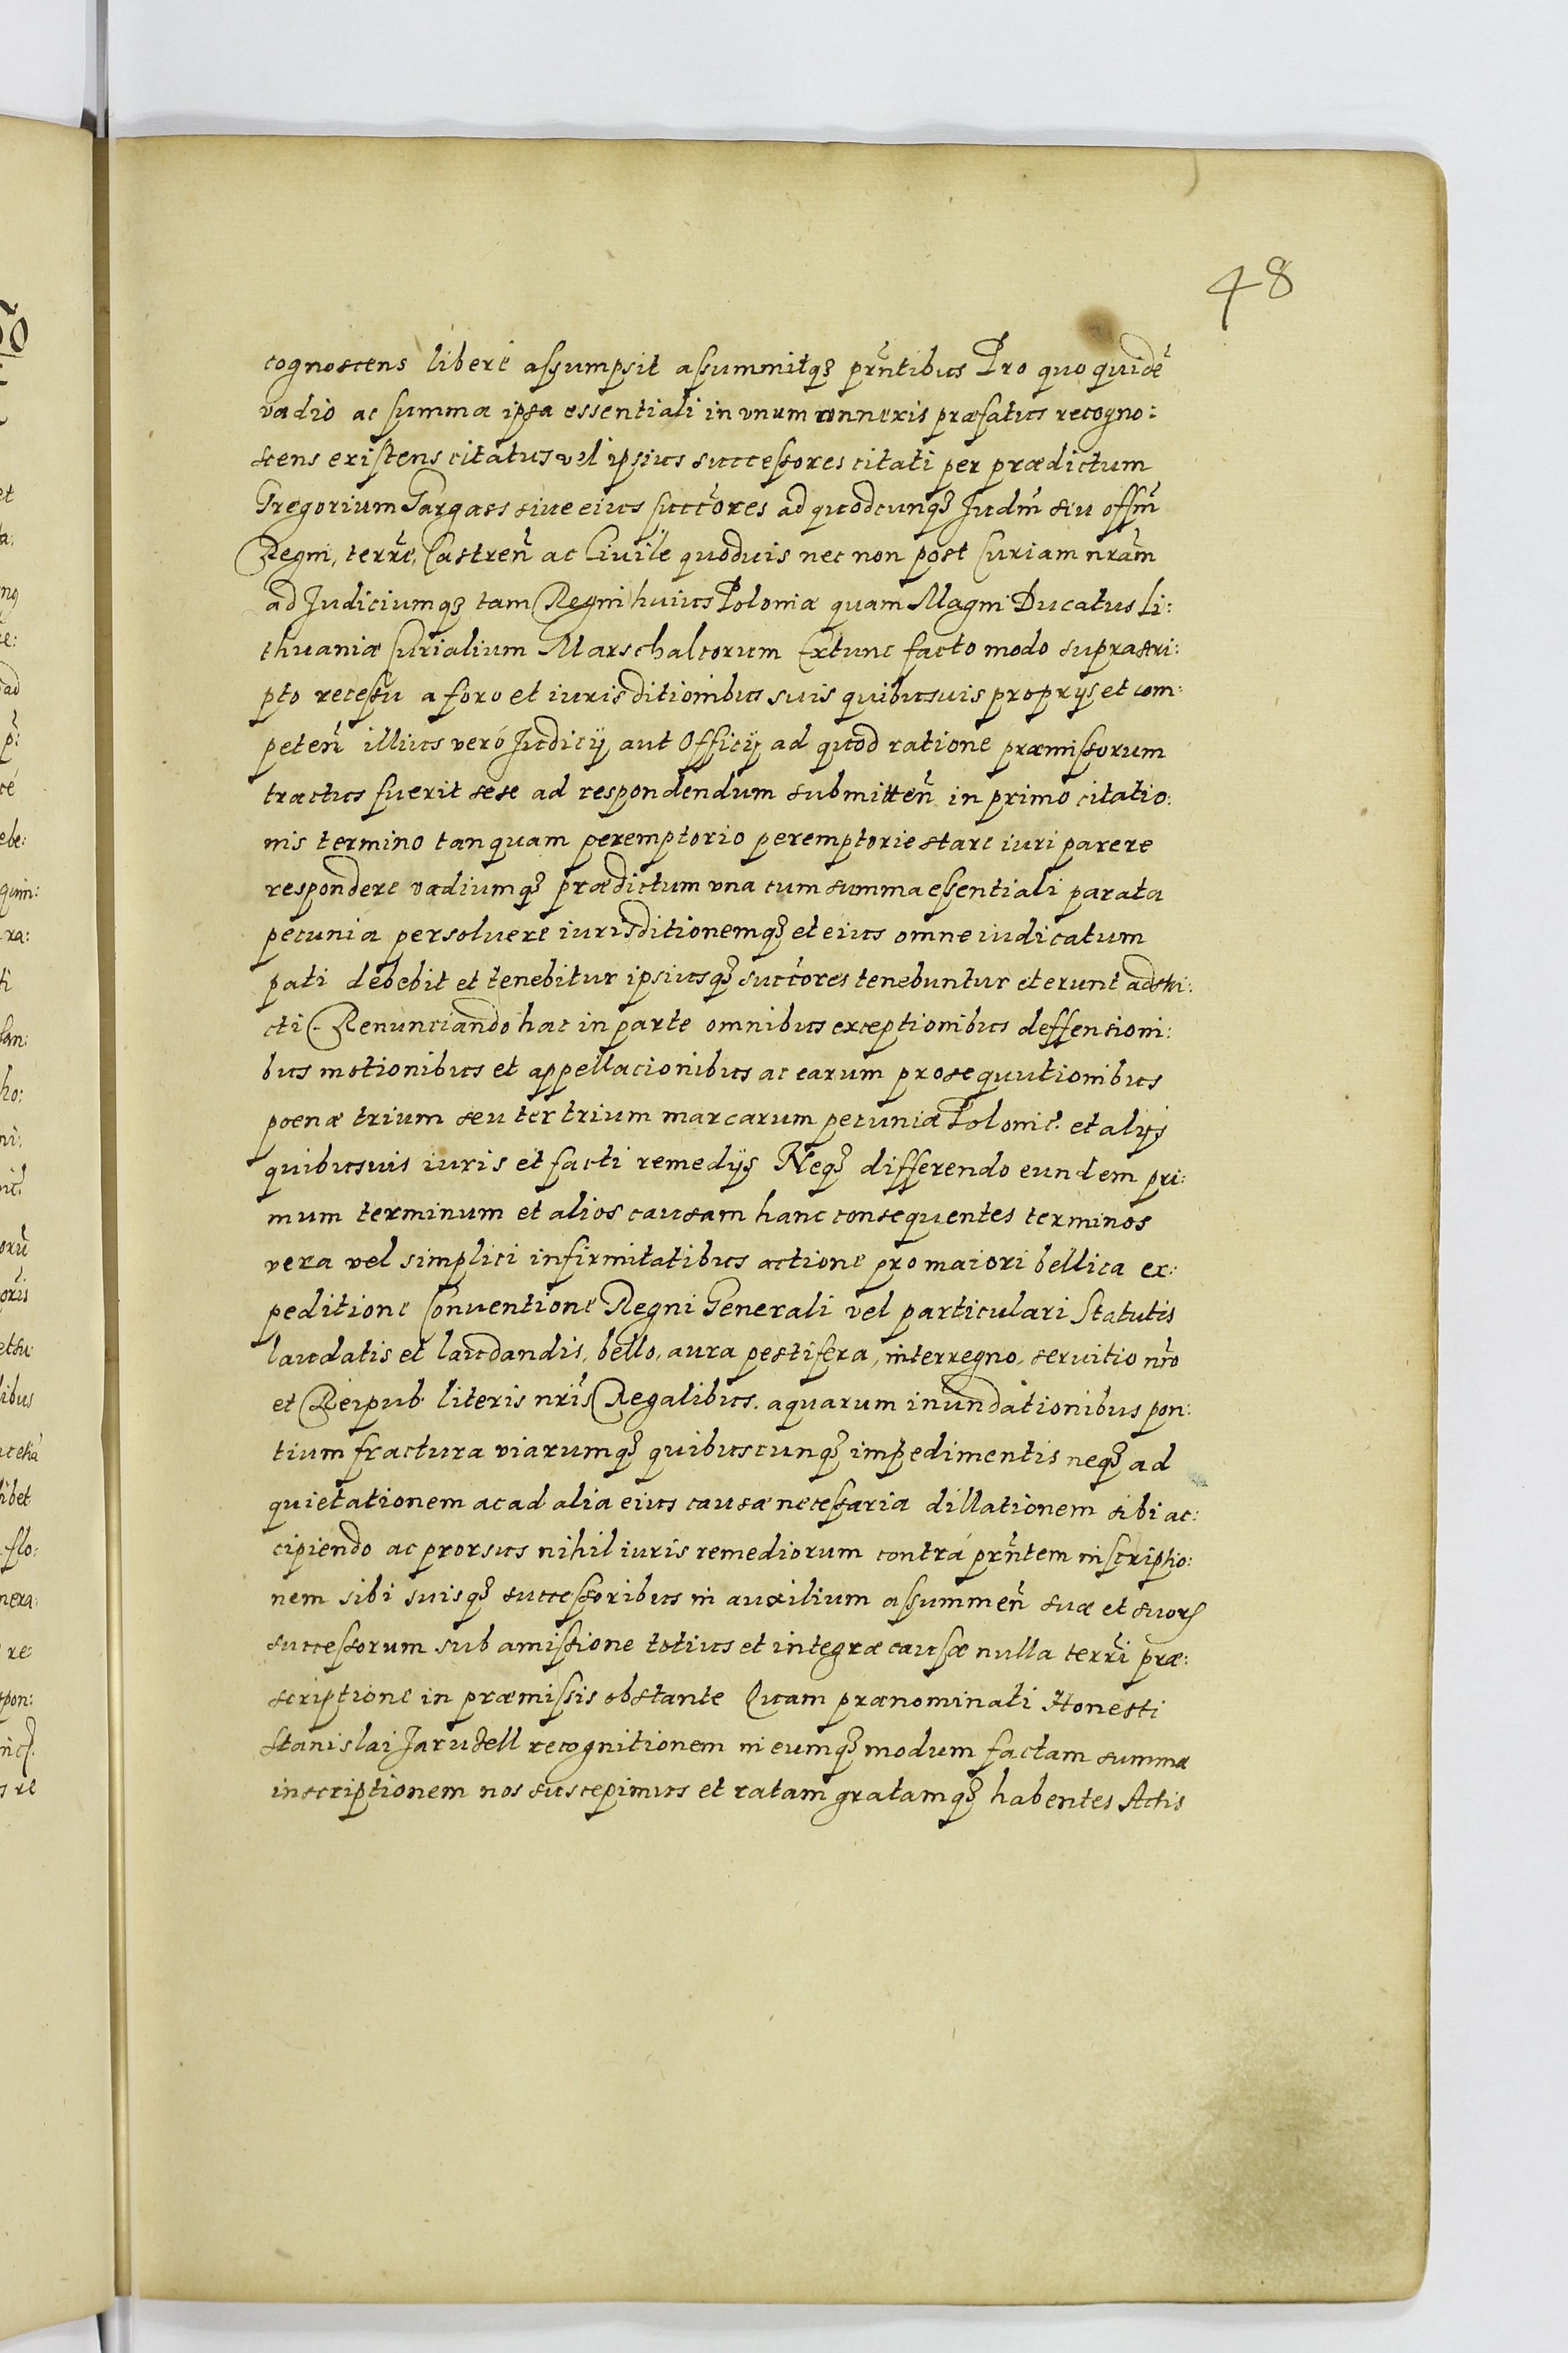 48
cognoscens liberé assumpsit assummitq₃ pr̃ntibus Pro quo quidẽ
vadio ac summa ipsa essentiali in vnum connexis præfatus recogno:
scens existens citatus vel ipsius successores citati per prædictum
Gregorium Gargass siue eius succ̃ores ad quodcunq₃ Judm̃ seu offm̃
Regni, terrẽ, Castreñ ac Ciuile quoduis nec non post Curiam nrãm
ad Judiciumq₃ tam Regni huius Poloniæ quam Magni Ducatus Li:
thuaniæ Curialium Marschalcorum Extunc facto modo suprascri:
pto recessu a foro et iurisditionibus suis quibusuis proprijs et com:
peteñ illius veró Judicij aut Officij ad quod ratione præmissorum
tractus fuerit sese ad respondendum submitteñ in primo citatio:
nis termino tanquam peremptorio peremptorie stare iuri parere
respondere vadiumq₃ prædictum vna cum summa essentiali parata
pecunia persoluere iurisditionemq₃ et eius omne iudicatum
pati debebit et tenebitur ipsiusq₃ succ̃ores tenebuntur et erunt adstri:
cti. Renunciando hac in parte omnibus exceptionibus deffensioni:
bus motionibus et appellacionibus ac earum prosequutionibus
poenæ trium seu ter trium marcarum pecuniæ Polonic̃. et alijs
quibusuis iuris et facti remedijs Neq₃ differendo eundem pri:
mum terminum et alios causam hanc consequentes terminos
vera vel simplici infirmitatibus actione pro maiori bellica ex:
peditione Conuentione Regni Generali vel particulari Statutis
laudatis et laudandis, bello, aura pestifera, interregno, seruitio nrõ
et Reipub literis nrĩs Regalibus. aquarum inundationibus pon:
tium fractura viarumq₃ quibuscunq₃ impedimentis neq₃ ad
quietationem ac ad alia eius causæ necessaria dillationem sibi ac:
cipiendo ac prorsus nihil iuris remediorum contrá pr̃ntem inscriptio:
nem sibi suisq₃ successoribus in auxilium assummeñ suæ et suorꝝ
successorum sub amissione totius et integræ causæ nulla terrĩ præ:
scriptione in præmissis obstante Quam prænominati Honesti
Stanislai Jarudell recognitionem in eumq₃ modum factam summæ
inscriptionem nos suscepimus et ratam gratamq₃ habentes Actis